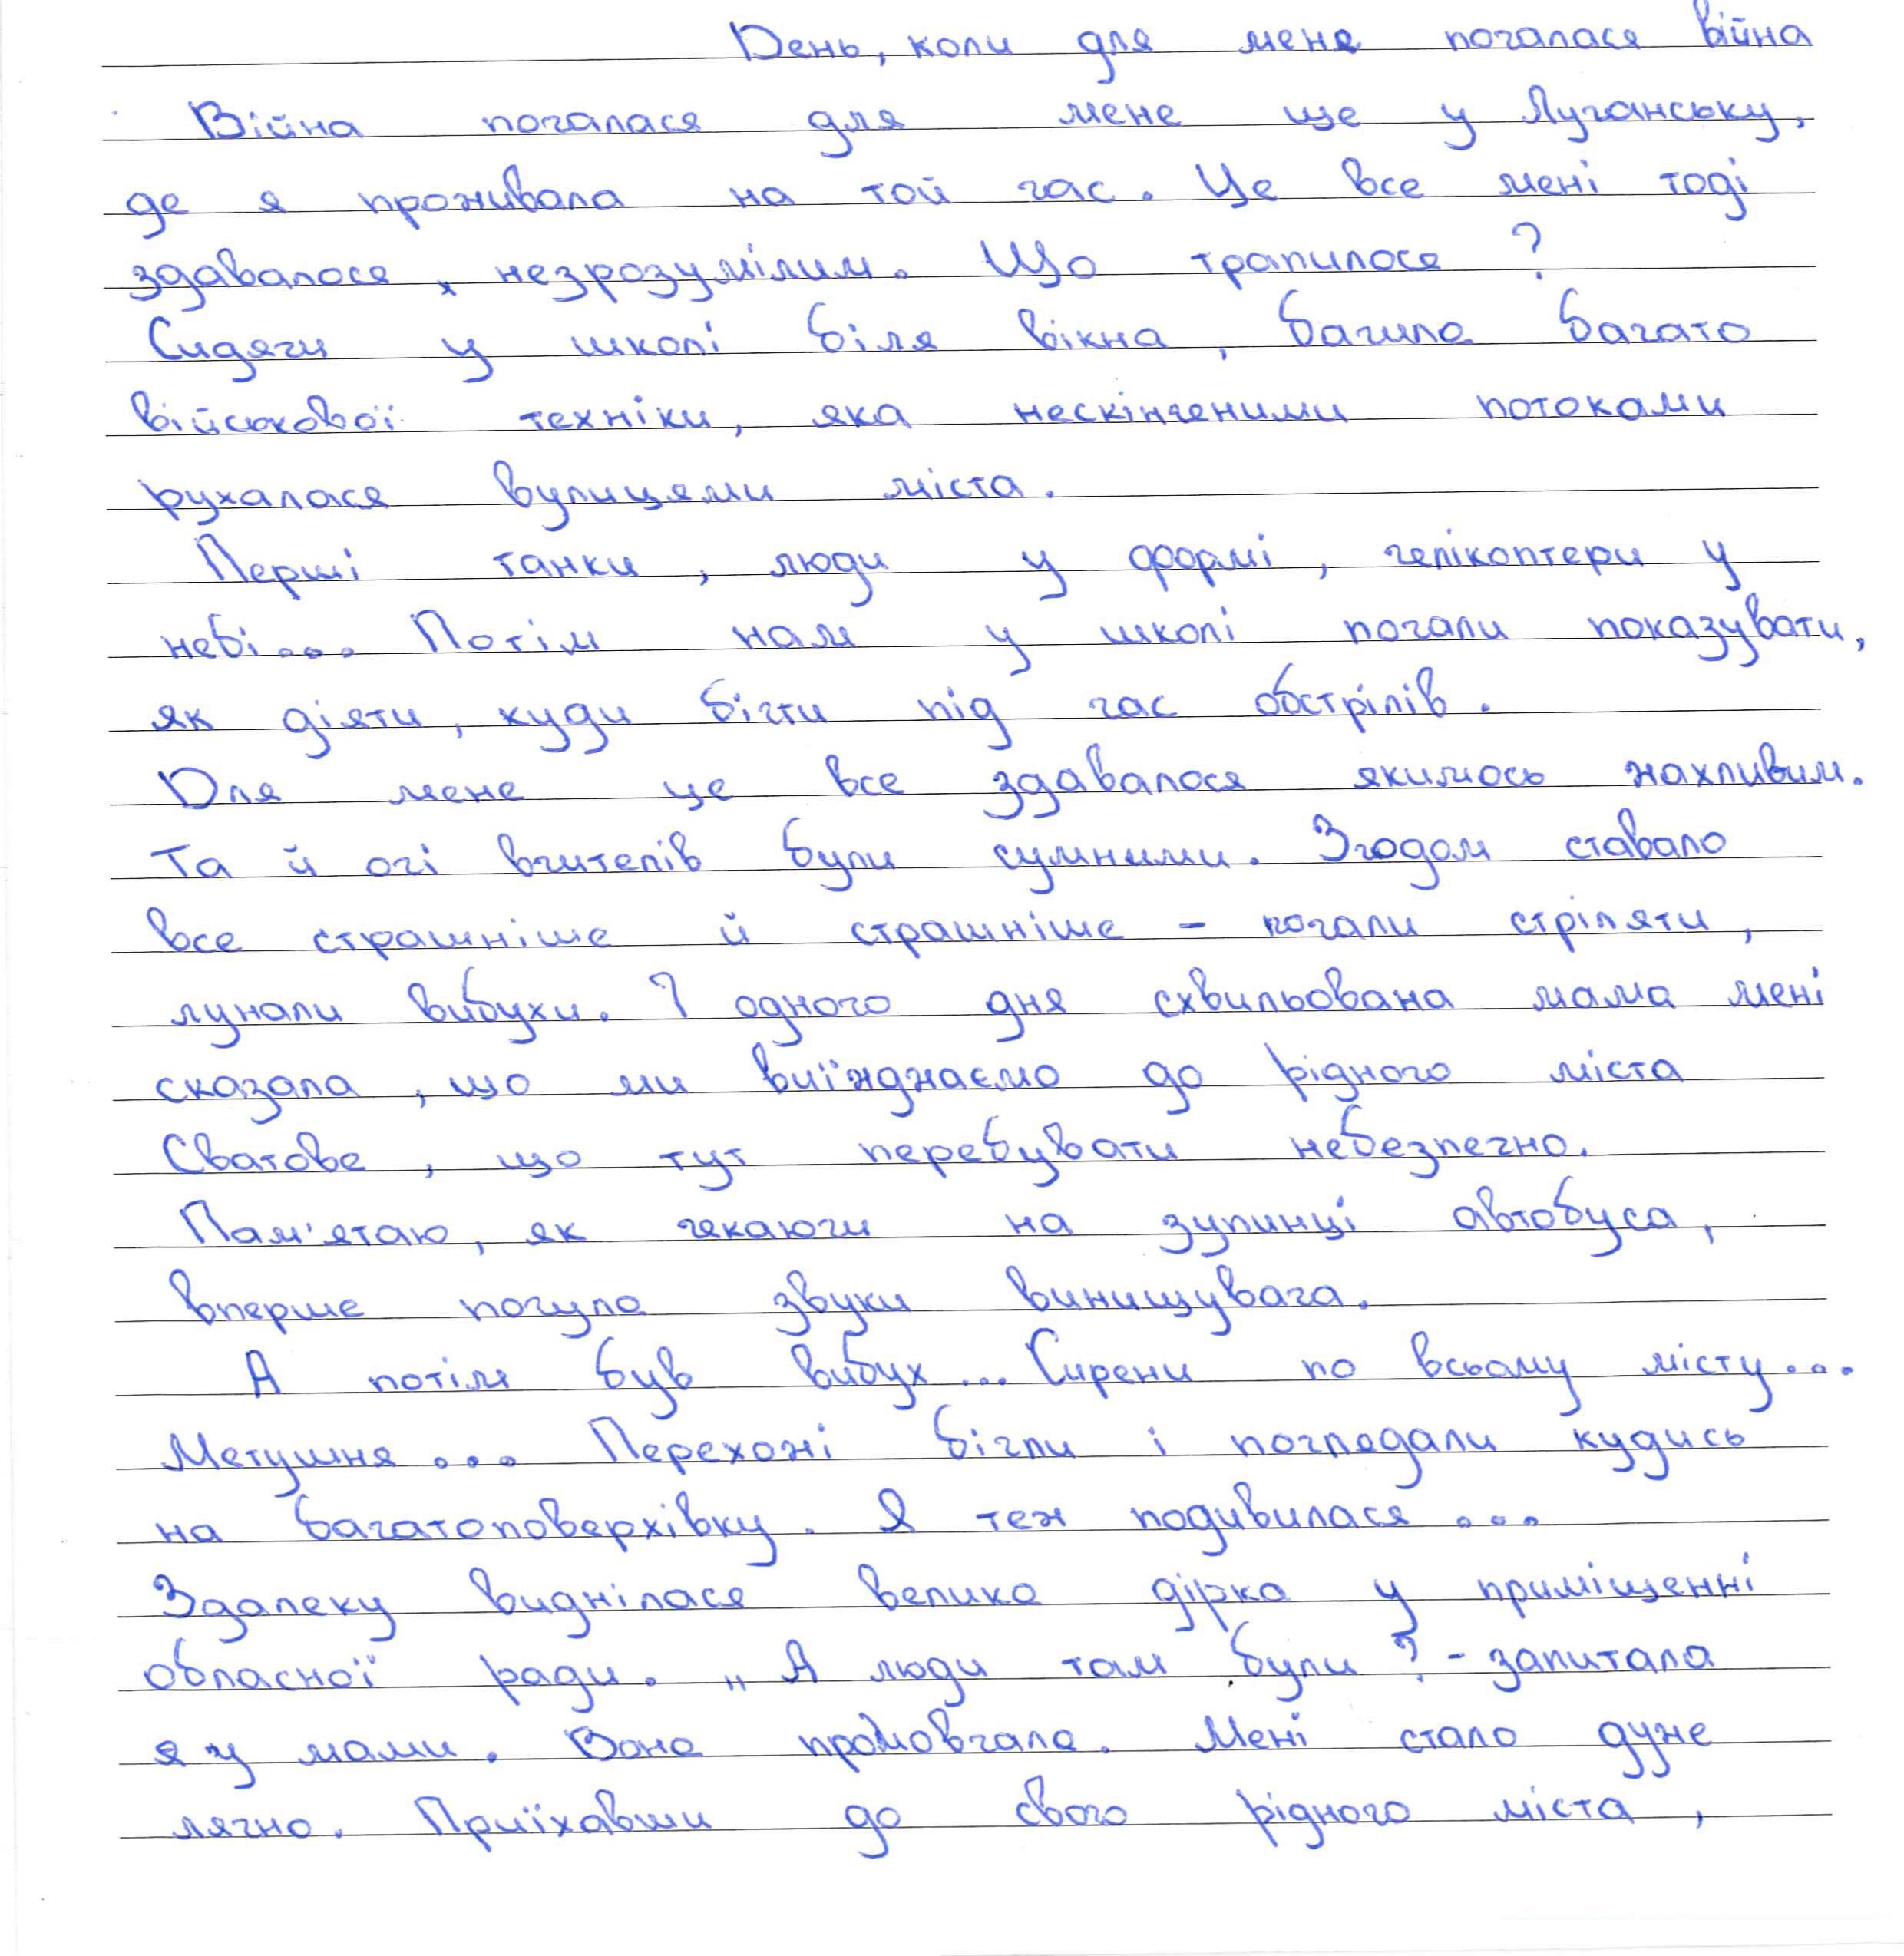 День, коли для мене почалася війна
Війна почалася для мене ще у Луганську,
де я проживала на той час. Це все мені тоді
здавалося незрозумілим. Що трапилося ?
Сидячи у школі біля вікна, бачила багато
військової техніки, яка нескінченими потоками
рухалася вулицями міста.
Перші танки, люди у формі, гелікоптери у
небі... Потім нам у школі почали показувати,
як діяти, куди бігти під час обстрілів.
Для мене це все здавалося якимось жахливим.
Та й очі вчителів були сумними. Згодом ставало
все страшніше й страшніше - почали стріляти,
лунали вибухи. І одного дня схвильована мама мені
сказала, що ми виїжджаємо до рідного міста
Сватове, що тут перебувати небезпечно.
Пам'ятаю, як чекаючи на зупинці автобуса,
вперше почула звуки винищувача.
А потім був вибух... Сирени по всьому місту...
Метушня... Перехожі бігли і поглядали кудись
на багатоповерхівку. Я теж подивилася...
Здалеку виднілася велика дірка у приміщенні
обласної ради. „А люди там були ? - запитала
я у мами. Вона промовчала. Мені стало дуже
лячно. Приїхавши до свого рідного міста,